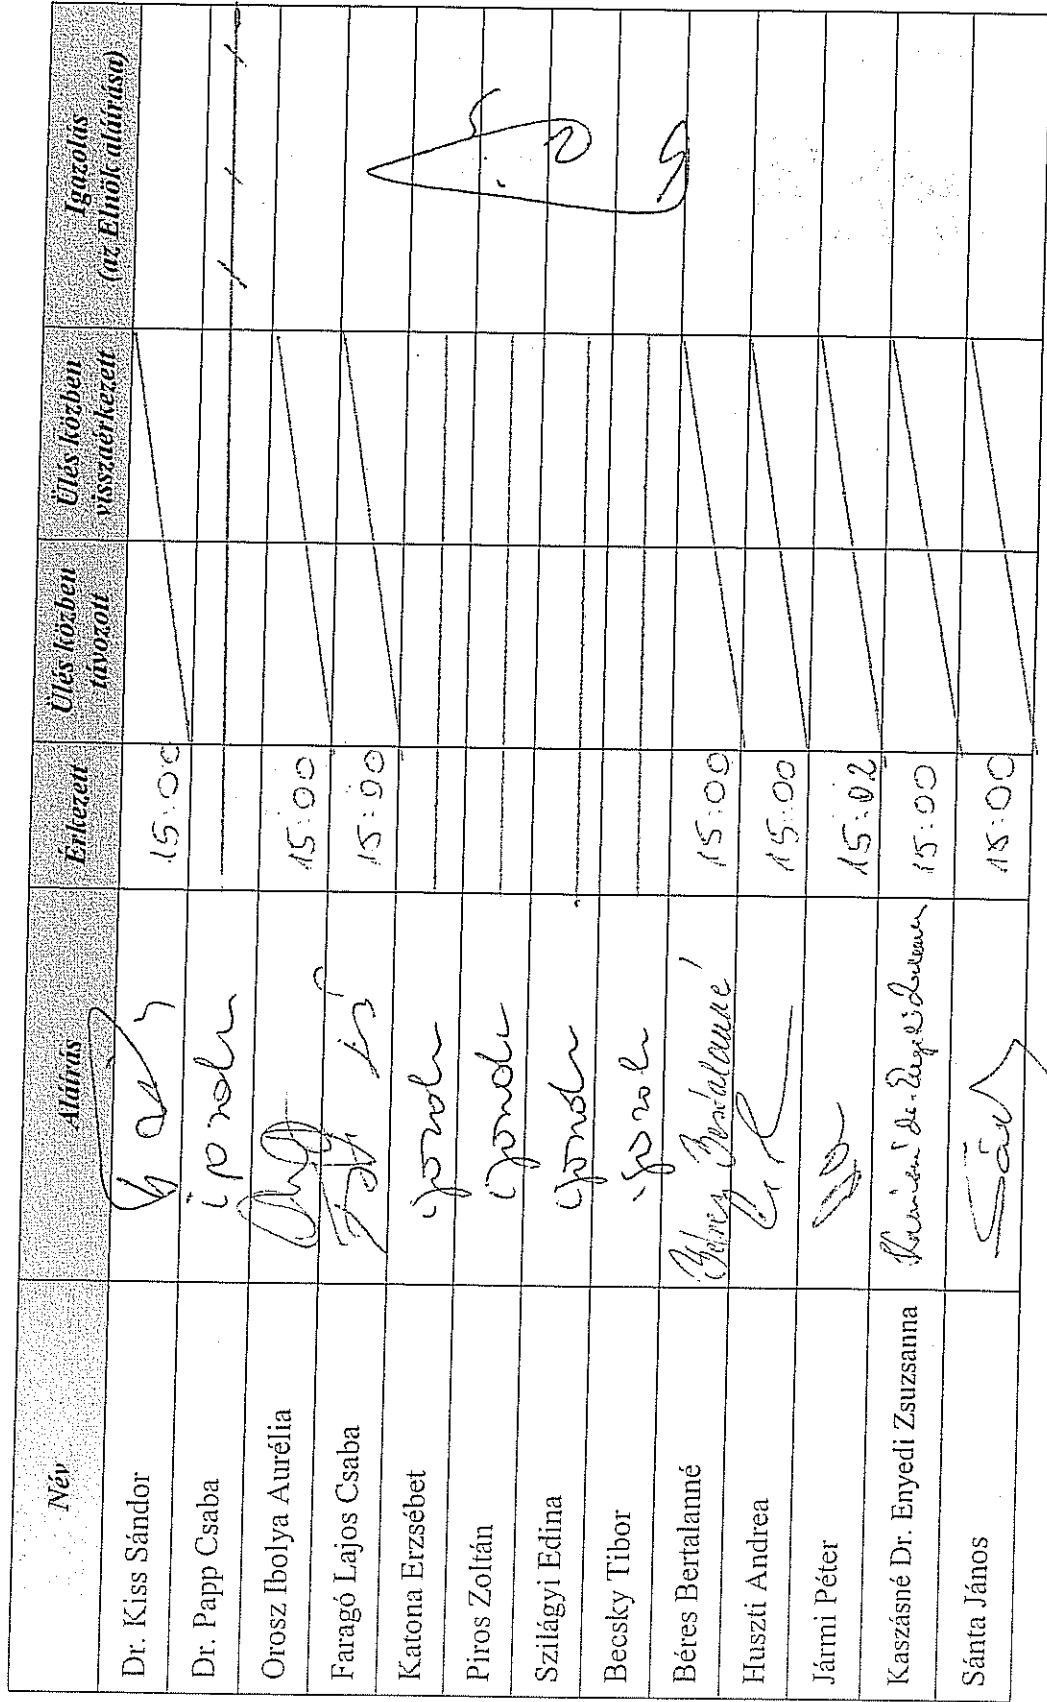 Név Aláírás Érkezett Ülés közben távozott Ülés közben visszaérkezett Igazolás (az Elnök aláírása)
Dr. Kiss Sándor 15:00
Dr. Papp Csaba
Orosz Ibolya Aurélia 15:00
Faragó Lajos Csaba 15:00
Katona Erzsébet
Piros Zoltán
Szilágyi Edina
Becsky Tibor
Béres Bertalanné Béres Bertalanné 15:00
Huszti Andrea 15:00
Jármi Péter 15:02
Kaszásné Dr. Enyedi Zsuzsanna 15:00
Sánta János 15:00